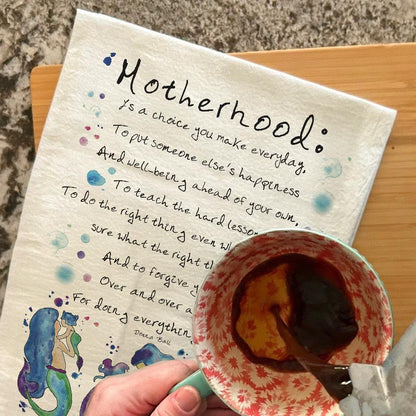 Motherhood:
Is a choice you make everyday,
To put someone else's happiness
And well-being ahead of your own,
To teach the hard
To do the right thing even
sure what the right
And to forgive
Over and over
For doing everything
Donna Ball